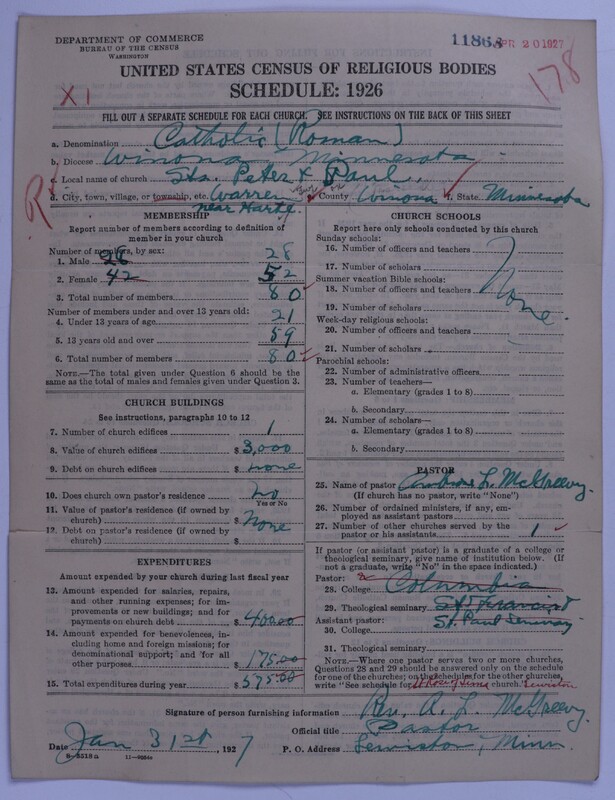 DEPARTMENT OF COMMERCE
BUREAU OF THE CENSUS
WASHINGTON
11868 APR 20 1927
178
X 1
UNITED STATES CENSUS OF RELIGIOUS BODIES
SCHEDULE: 1926
FILL OUT A SEPARATE SCHEDULE FOR EACH CHURCH. SEE INSTRUCTIONS ON THE BACK OF THIS SHEET
a. Denomination Catholic (Roman)
b. Diocese Winona, Minnesota
c. Local name of church Sts. Peter & Paul
d. City, town, village, or township, etc. Warren County Winona f. State Minnesota
near Hart
R
MEMBERSHIP
Report number of members according to definition of member in your church
Number of members, by sex:
1. Male 28 28
2. Female 42 52
3. Total number of members 80
Number of members under and over 13 years old:
4. Under 13 years of age 21
5. 13 years old and over 59
6. Total number of members 80
NOTE.—The total given under Question 6 should be the same as the total of males and females given under Question 3.
CHURCH BUILDINGS
See instructions, paragraphs 10 to 12
7. Number of church edifices 1
8. Value of church edifices $ 3,000
9. Debt on church edifices $ none
10. Does church own pastor's residence No
Yes or No
11. Value of pastor's residence (if owned by church) $ None
12. Debt on pastor's residence (if owned by church) $
EXPENDITURES
Amount expended by your church during last fiscal year
13. Amount expended for salaries, repairs, and other running expenses; for improvements or new buildings; and for payments on church debt $ 400.00
14. Amount expended for benevolences, including home and foreign missions; for denominational support; and for all other purposes $ 175.00
15. Total expenditures during year $ 575.00
CHURCH SCHOOLS
Report here only schools conducted by this church
Sunday schools:
16. Number of officers and teachers
17. Number of scholars
Summer vacation Bible schools:
18. Number of officers and teachers
None.
19. Number of scholars
Week-day religious schools:
20. Number of officers and teachers
21. Number of scholars
Parochial schools:
22. Number of administrative officers
23. Number of teachers—
a. Elementary (grades 1 to 8)
b. Secondary
24. Number of scholars—
a. Elementary (grades 1 to 8)
b. Secondary
PASTOR
25. Name of pastor Ambrose L. McGreevy
(If church has no pastor, write "None")
26. Number of ordained ministers, if any, employed as assistant pastors
27. Number of other churches served by the pastor or his assistants 1
If pastor (or assistant pastor) is a graduate of a college or theological seminary, give name of institution below. (If not a graduate, write "No" in the space indicated.)
Pastor:
28. College Columbia
29. Theological seminary St. Francis
Assistant pastor: St. Paul Seminary
30. College
31. Theological seminary
NOTE.—Where one pastor serves two or more churches, Questions 28 and 29 should be answered only on the schedule for one of the churches; on the schedules for the other churches, write "See schedule for St Rose of Lima church" Lewiston
Signature of person furnishing information Rev. A. L. McGreevy.
Official title Pastor
Date Jan 31st, 1927 P. O. Address Lewiston, Minn.